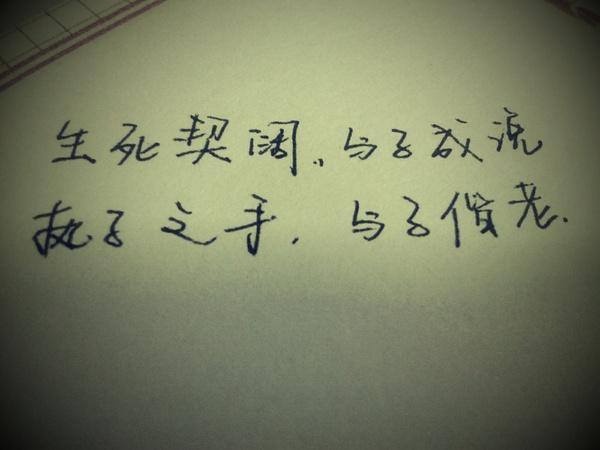 生死契阔,与子成说
执子之手,与子偕老.